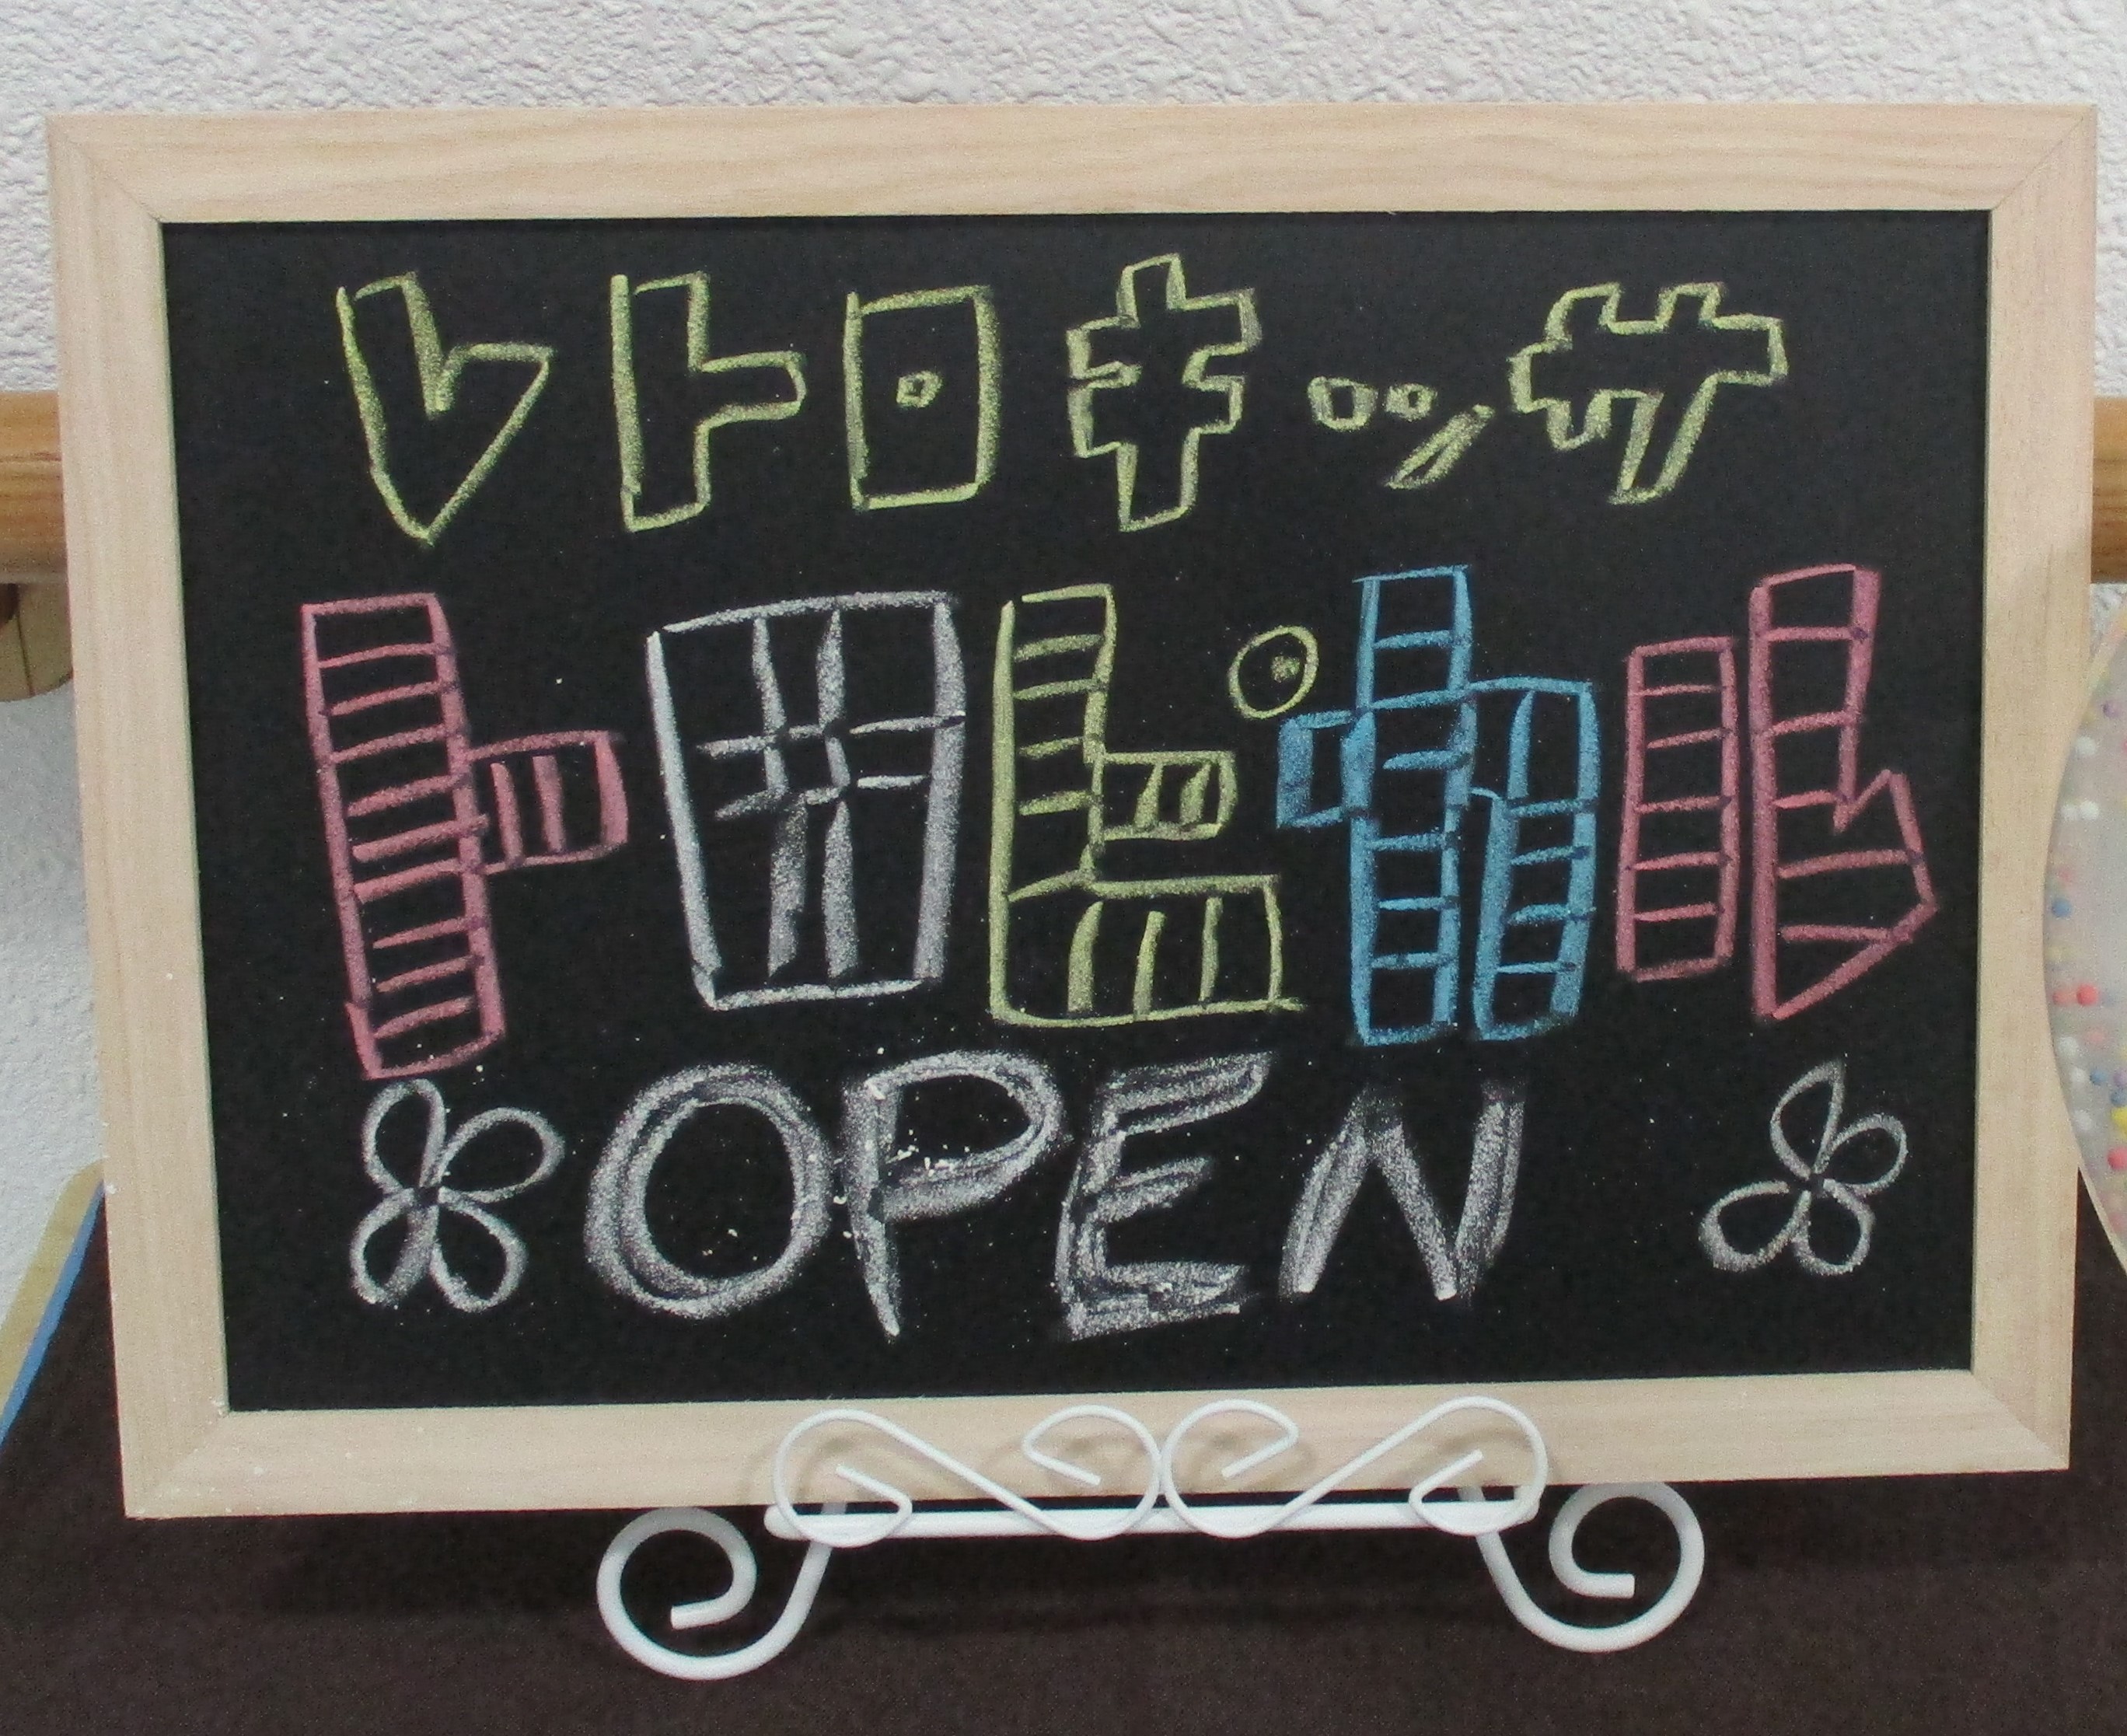 レトロキッサ
トロピカル
OPEN